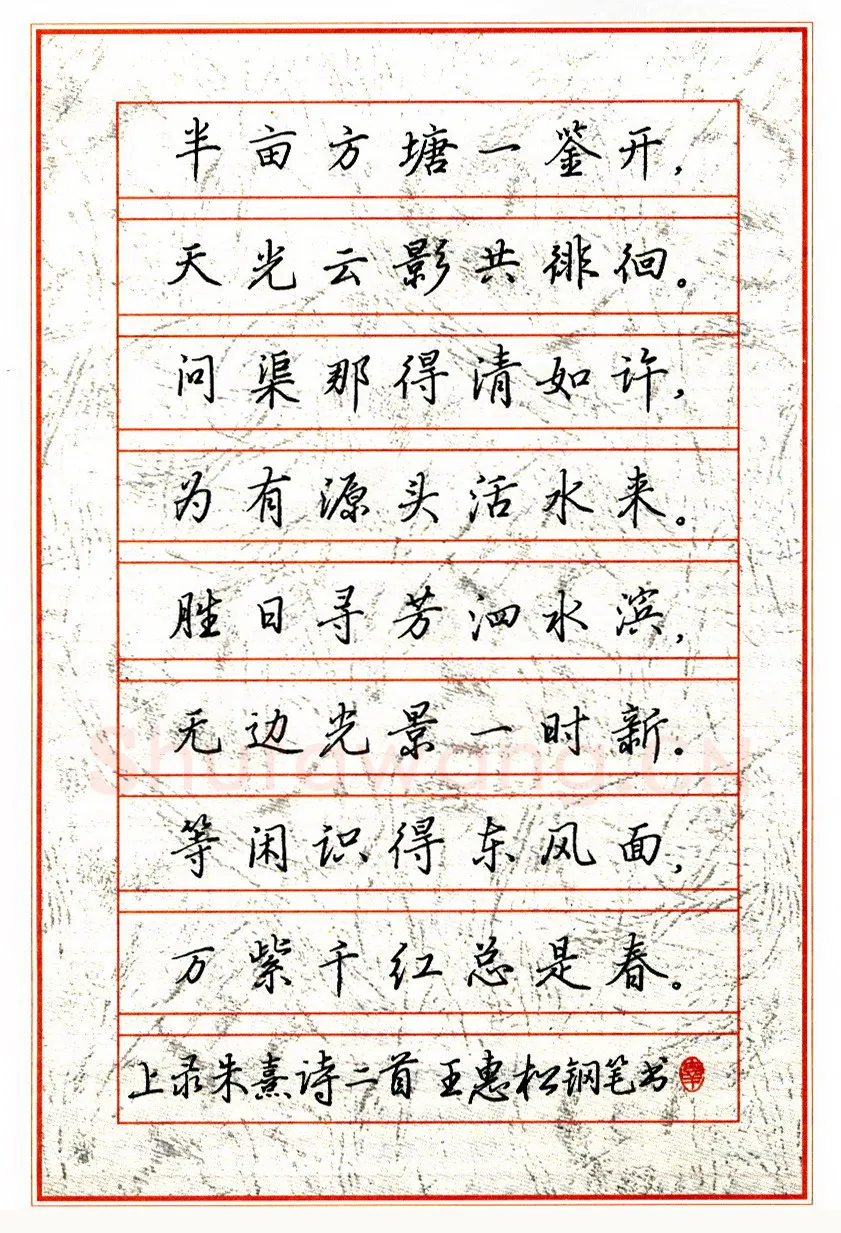 半亩方塘一鉴开，
天光云影共徘徊。
问渠那得清如许，
为有源头活水来。
胜日寻芳泗水滨，
无边光景一时新。
shufawang.CN
等闲识得东风面，
万紫千红总是春。
上录朱熹诗二首 王惠松钢笔书